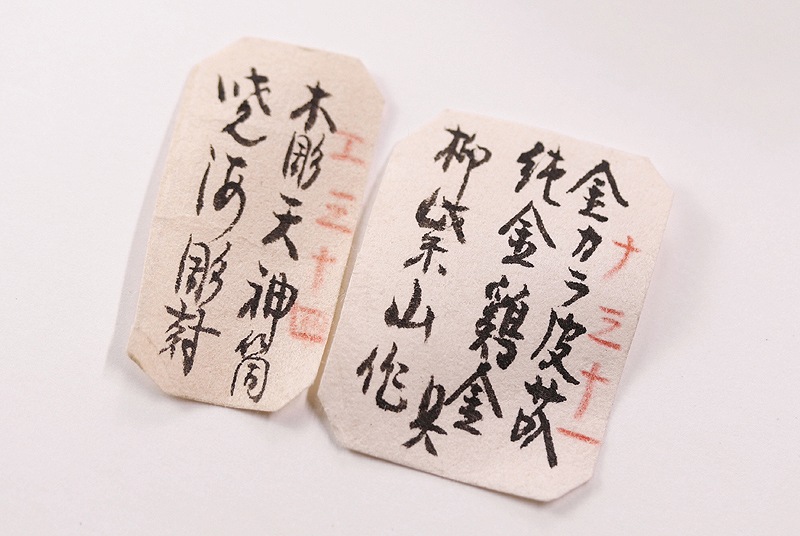 エ三十四
木彫天神筒
暁海彫封
ナ三十一
金カラ皮
純金鶏金具
柳柴山作